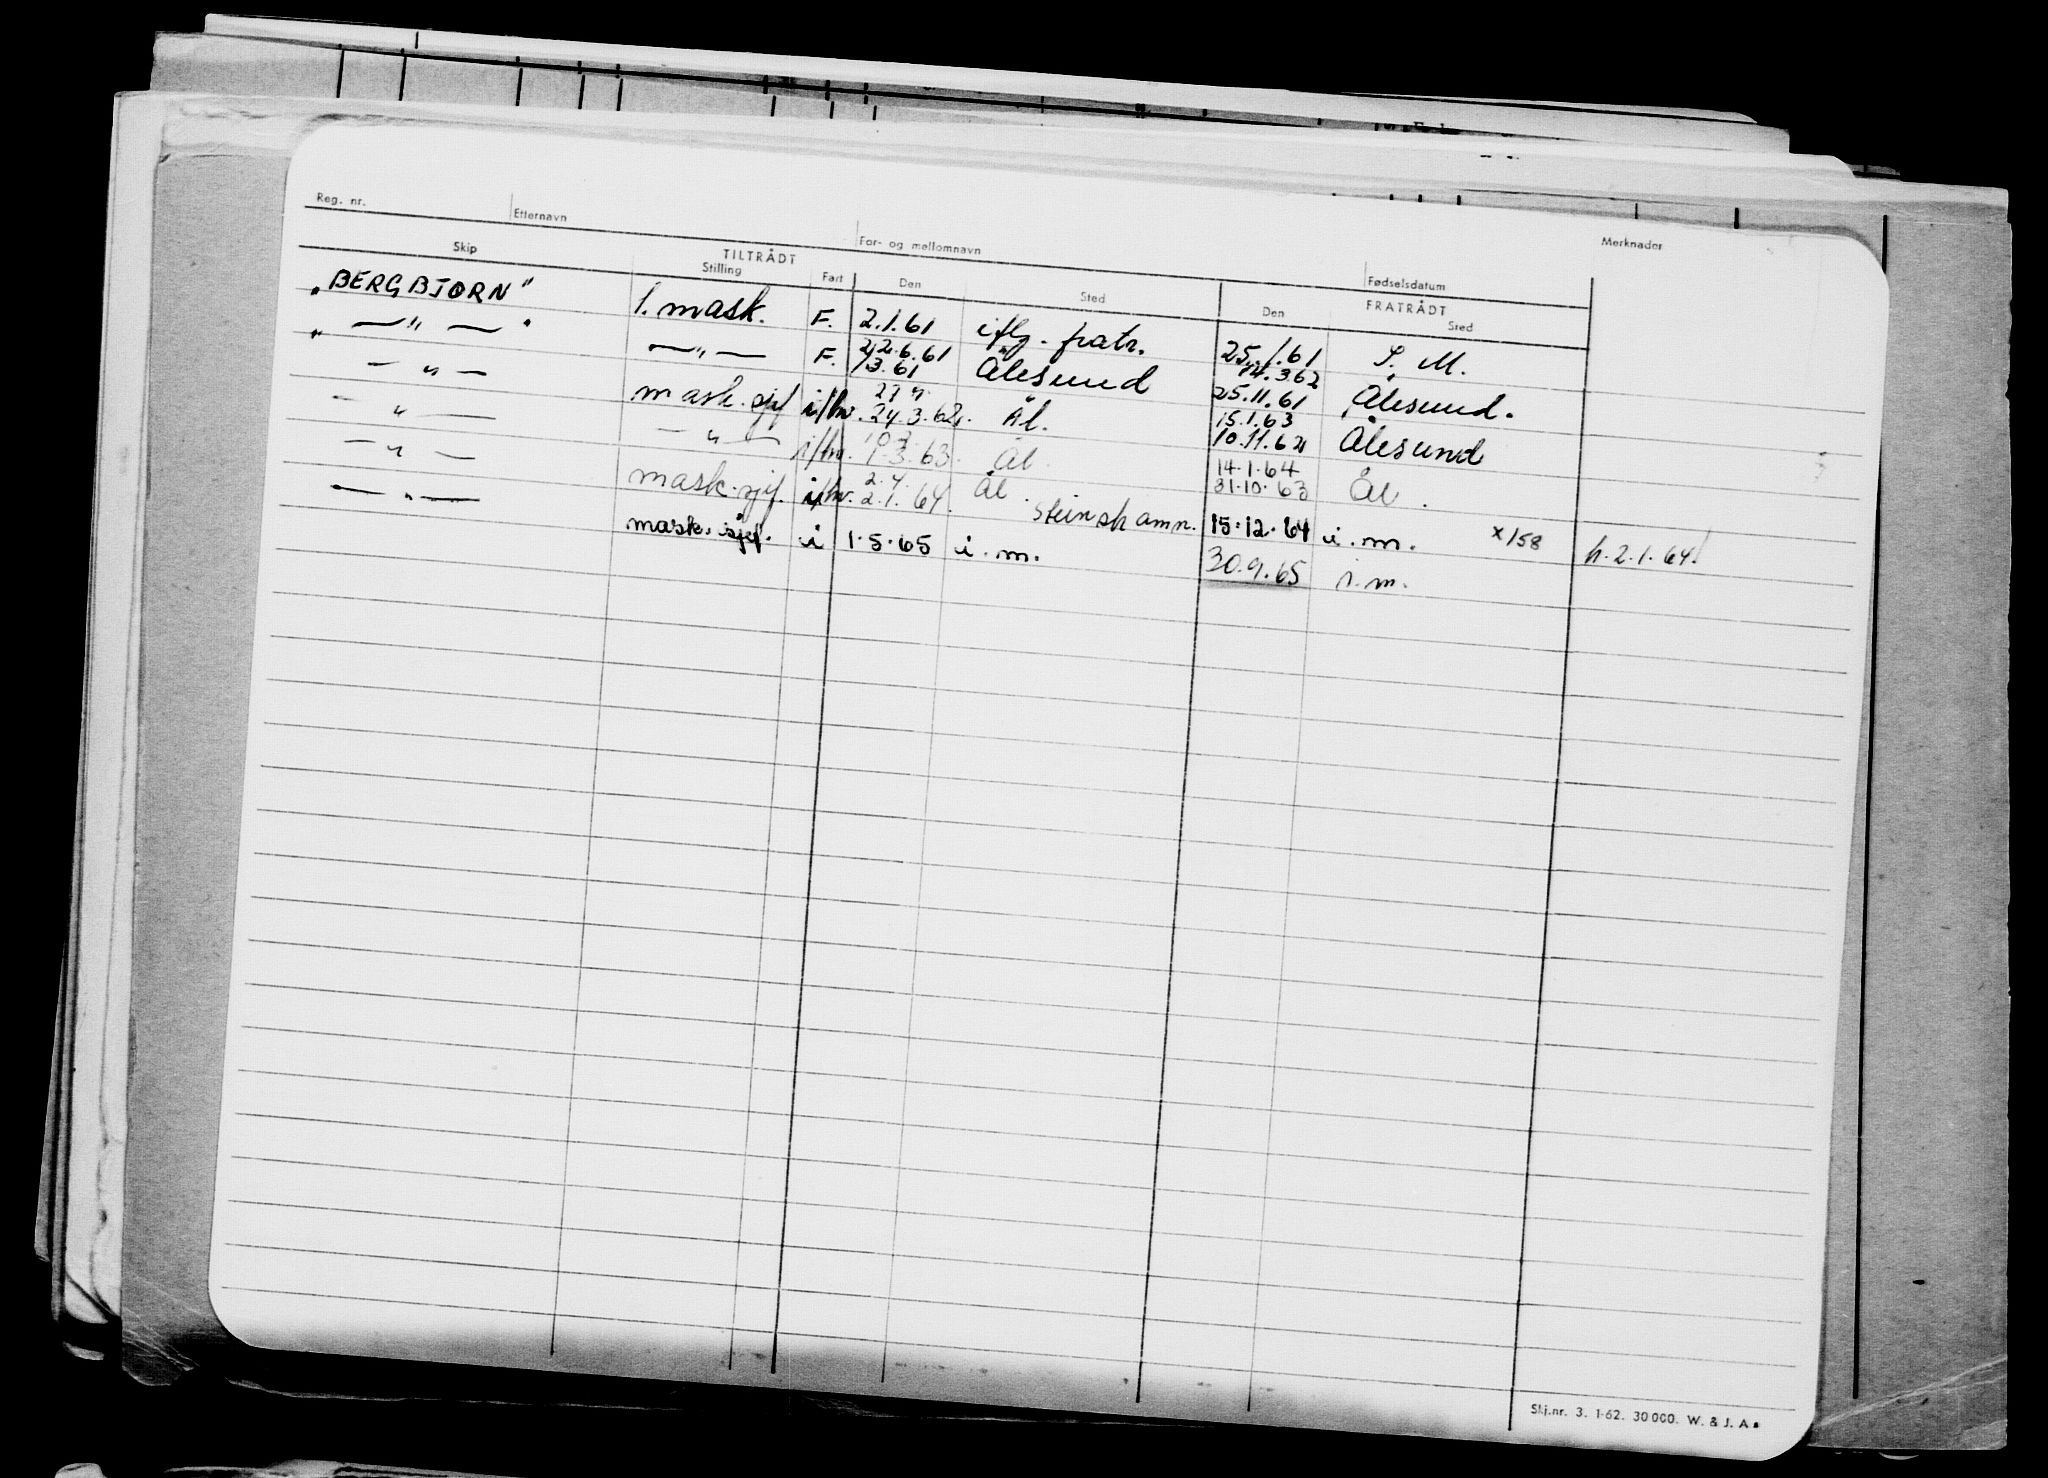 Reg. nr. Etternavn For- og mellomnavn Fødselsdatum Merknader
TILTRÅDT FRATRÅDT
Skip Stilling Fart Den Sted Den Sted
"BERGBJØRN" 1. mask. F. 2.1.61 iflg. fratr. 25.1.61 S. M.
" —"— " —"— F. 22.6.61 Ålesund 14.3.62
1/3.61 25.11.61 Ålesund.
— " — mask.sjef i/hv. 24.3.62. Ål. 15.1.63
10.11.62 Ålesund
— " — — " — i/hv. 1.3.63. Ål. 14.1.64
31.10.63 Ål.
— " — mask.sjef. i/hv. 2.1.64. Ål. Steinshamn. 15.12.64 i.m. x/58 h.2.1.64!
— " — mask.sjef. i 1.5.65 i.m. 30.9.65 i.m.
Skj.nr. 3. 1-62. 30 000. W. & J. A s